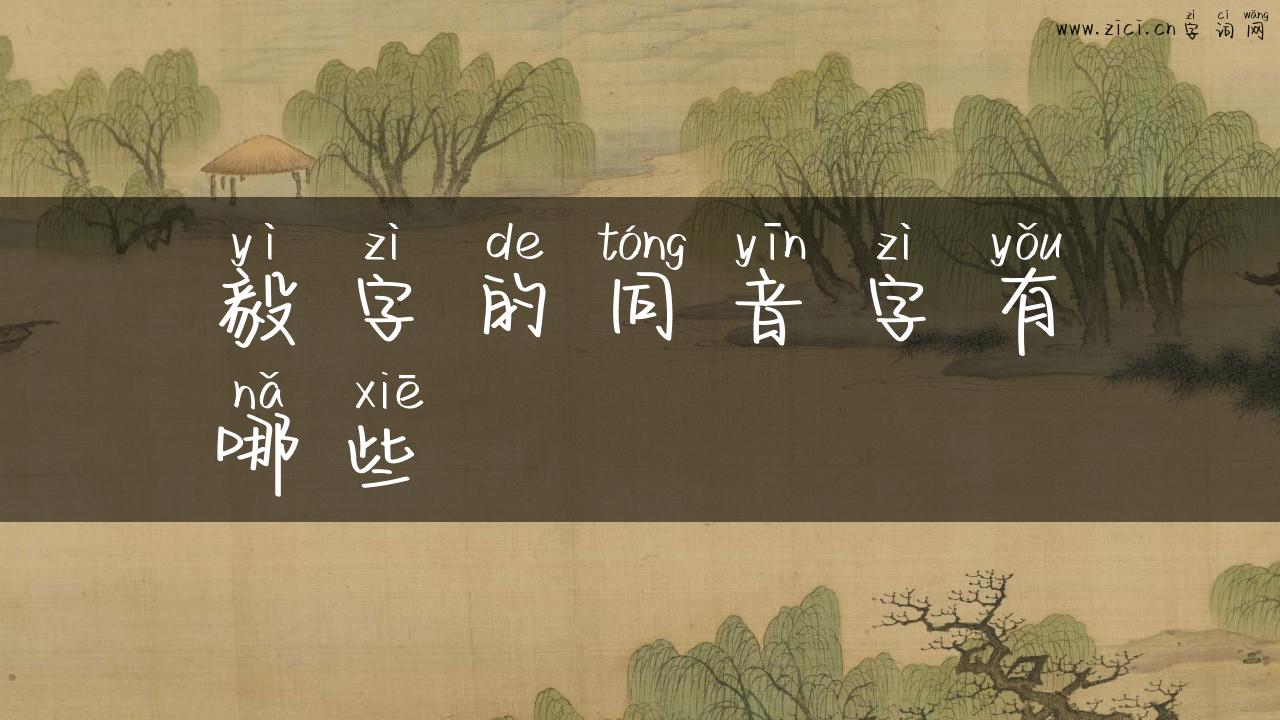 zì cí wǎng
www.zici.cn 字 词 网
yì zì de tóng yīn zì yǒu
毅 字 的 同 音 字 有
nǎ xiē
哪 些